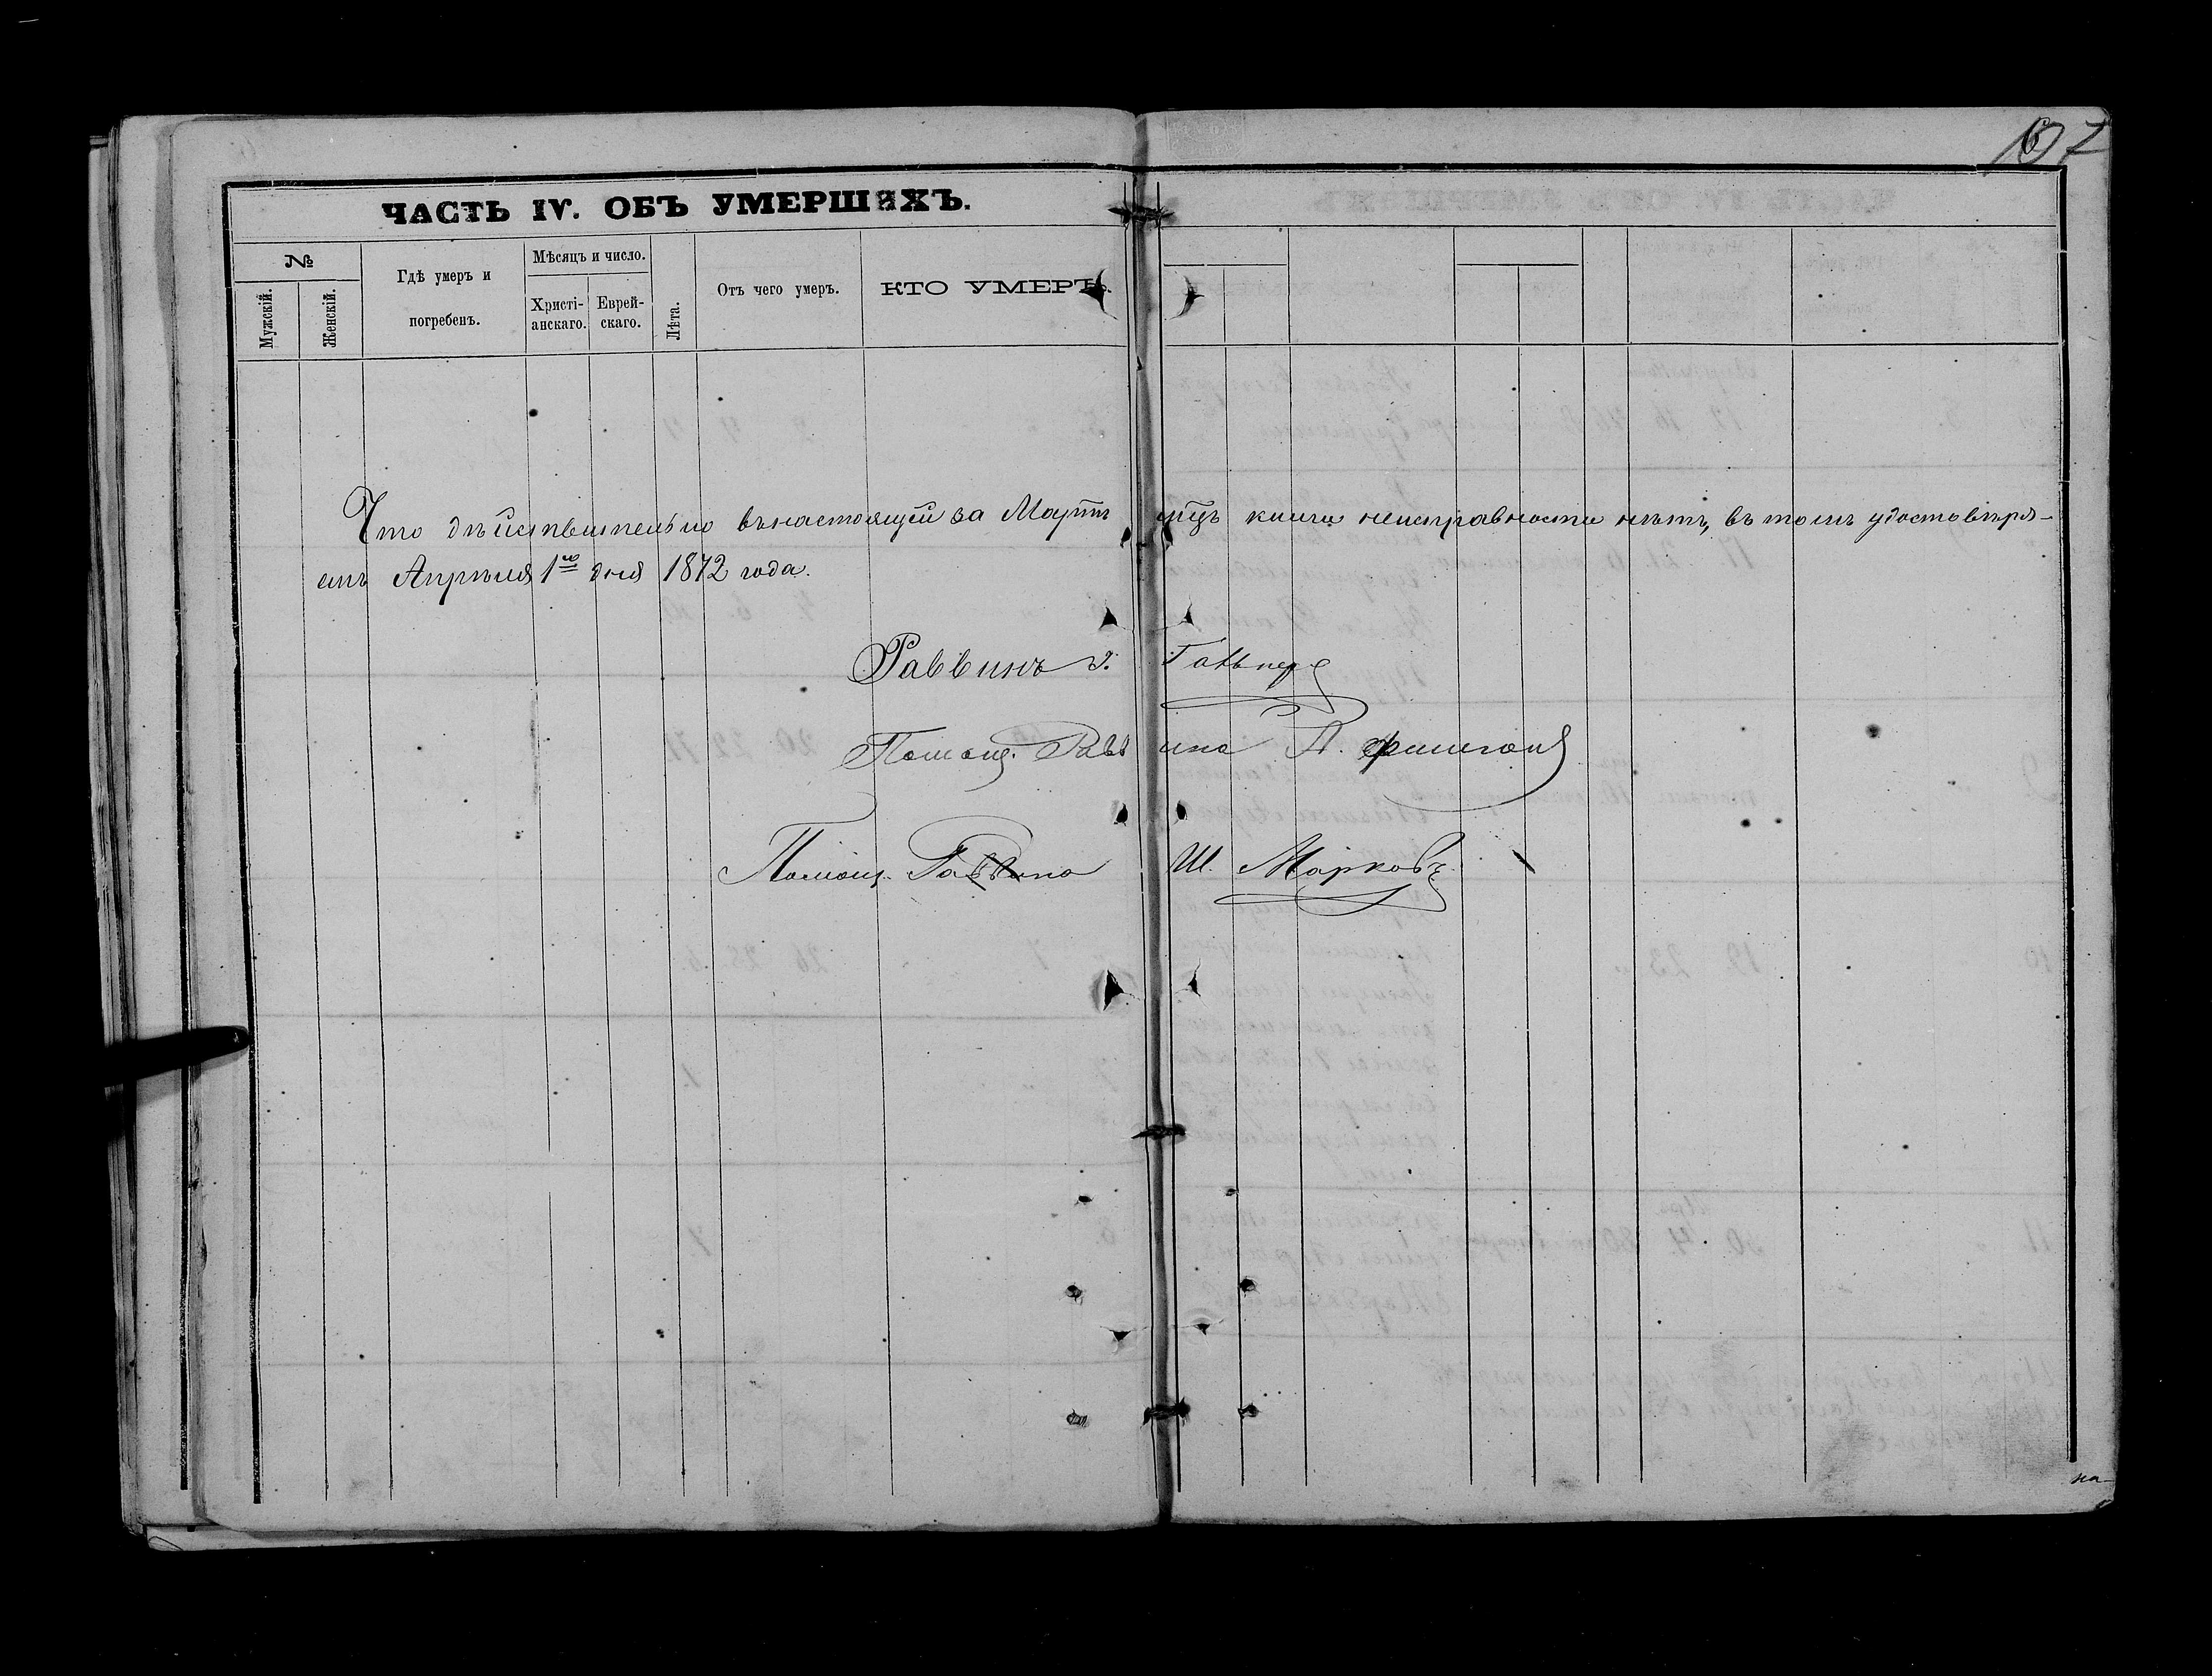 7
ЧАСТЬ IV. ОБЪ УМЕРШИХЪ.
№
Мужскій.
Женскій.
Гдѣ умеръ и погребенъ.
Мѣсяцъ и число.
Христі-анскаго.
Еврей-скаго.
Лѣта.
Отъ чего умеръ.
КТО УМЕРЪ.
Что дѣйствительно въ настоящей за Мартъ м-цъ книги неисправности нѣтъ, въ томъ удостовѣря-
емъ Апрѣля 1го дня 1872 года.
Раввинъ Г.
Помощ. Раввина
Помощ. Раввина Ш. Марковъ
на